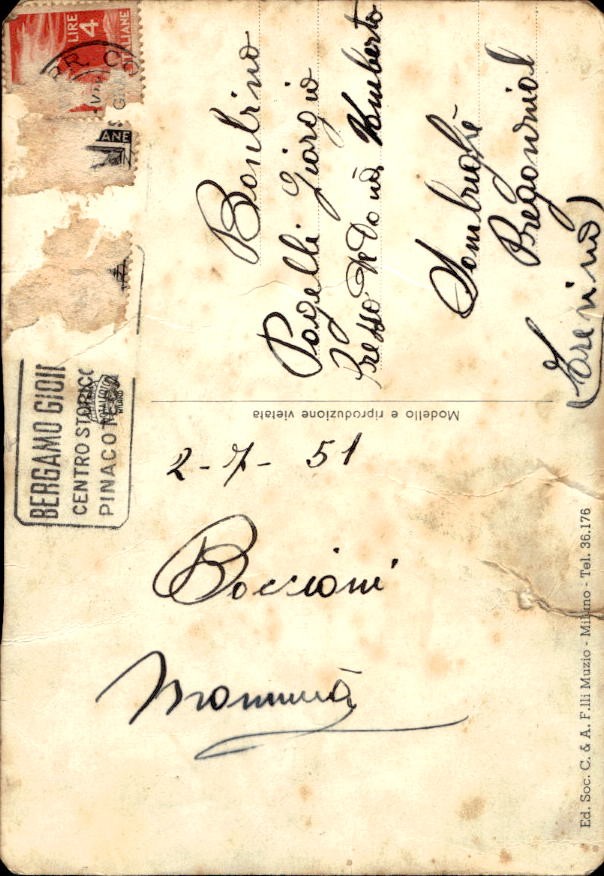 LIRE 4
ITALIANE
BERGAMO GIOII
CENTRO STORICO
PINACOTECA
Bonbino
Pagelli Giorgio
Presso Umberto
Sambughè
Preganziol
(Treviso)
Modello e riproduzione vietata
2-7-51
Baccioni
Mammà
Ed. Soc. C. & A. F.lli Muzio - Milano - Tel. 36.176